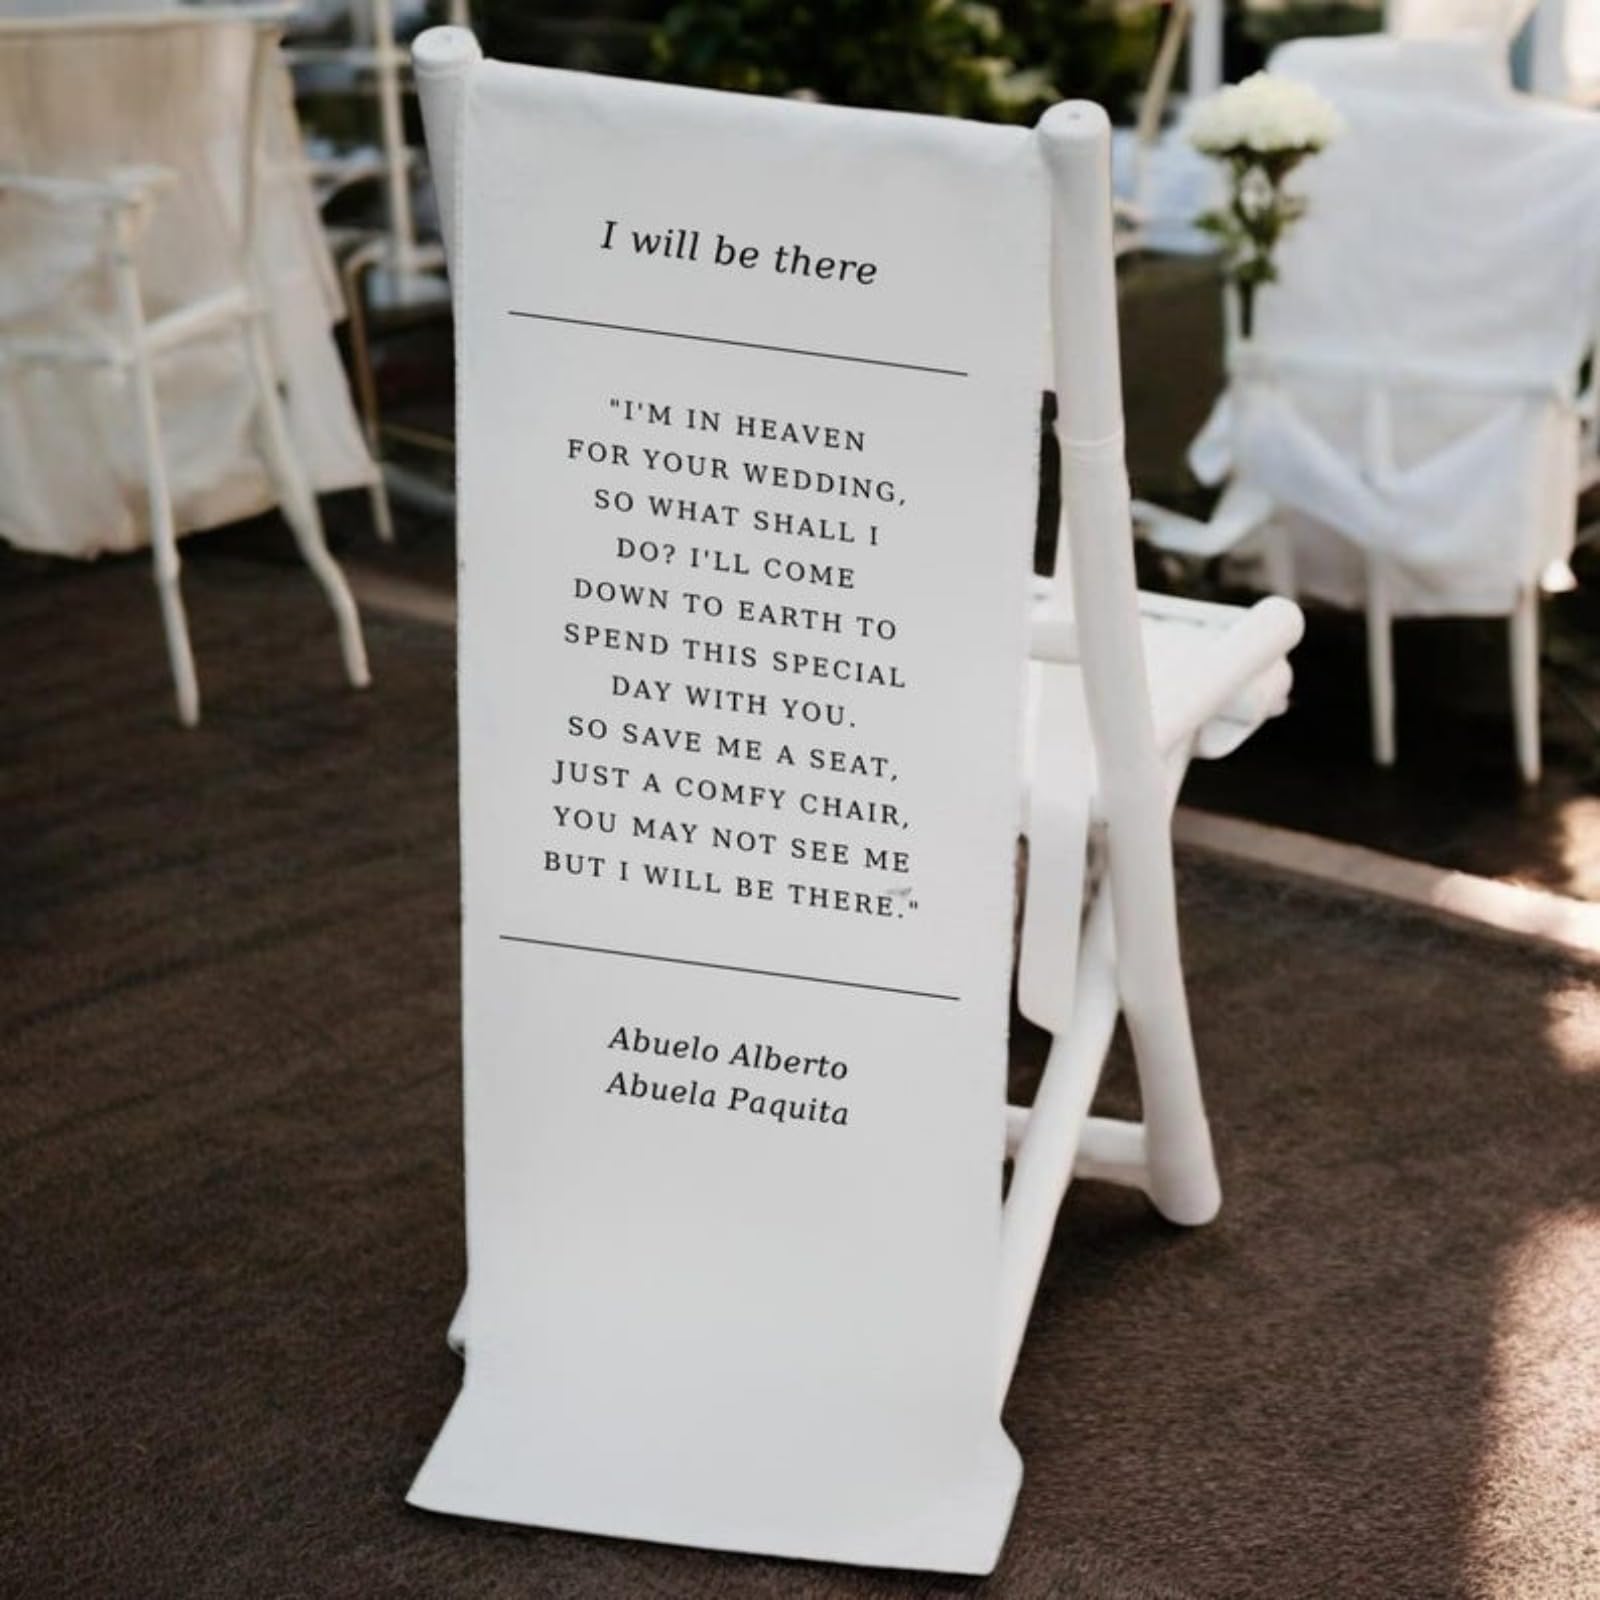 I will be there
"I'M IN HEAVEN
FOR YOUR WEDDING,
SO WHAT SHALL I
DO? I'LL COME
DOWN TO EARTH TO
SPEND THIS SPECIAL
DAY WITH YOU.
SO SAVE ME A SEAT,
JUST A COMFY CHAIR,
YOU MAY NOT SEE ME
BUT I WILL BE THERE."
Abuelo Alberto
Abuela Paquita